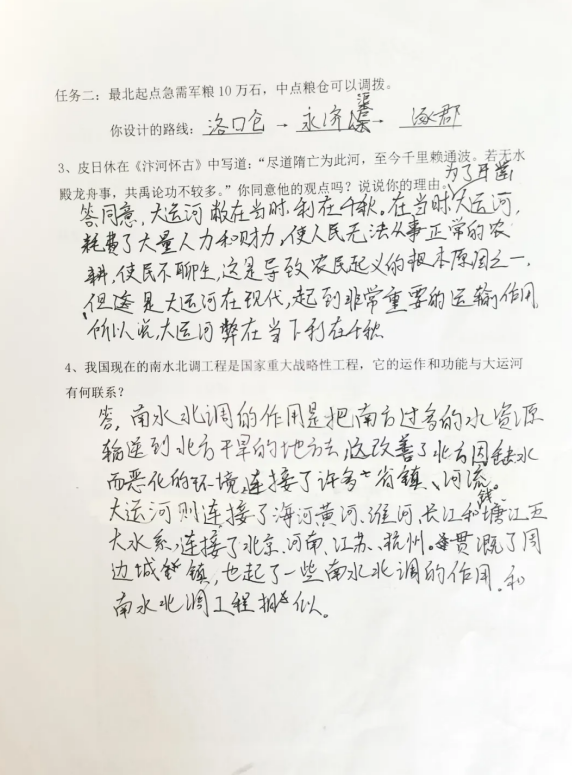 任务二：最北起点急需军粮10万石，中点粮仓可以调拨。
你设计的路线：洛口仓 → 永济渠 → 涿郡
3、皮日休在《汴河怀古》中写道：“尽道隋亡为此河，至今千里赖通波。若无水
殿龙舟事，共禹论功不较多。”你同意他的观点吗？说说你的理由。
为了开凿
答：同意，大运河敝在当时，利在千秋。在当时，大运河，
耗费了大量人力和财力，使人民无法从事正常的农
耕，使民不聊生，这是导致农民起义的根本原因之一，
但是大运河在现代，起到非常重要的运输作用
所以说，大运河弊在当下利在千秋
4、我国现在的南水北调工程是国家重大战略性工程，它的运作和功能与大运河
有何联系？
答，南水北调的作用是把南方过多的水资源
输送到北方干旱的地方去，这改善了北方因缺水
而恶化的环境，连接了许多个省镇、河流。
大运河则连接了海河黄河、淮河、长江和钱塘江五
大水系，连接了北京、河南、江苏、杭州。贯溉了周
边城镇，也起了一些南水北调的作用，和
南水北调工程相似。